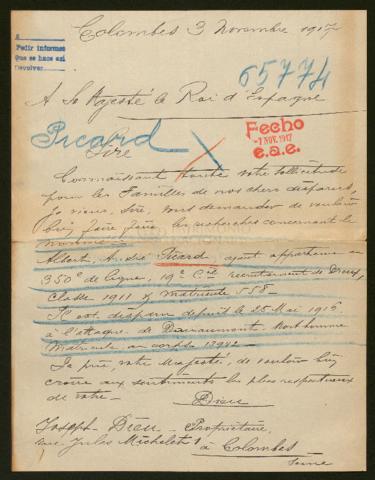 Colombes 3 Novembre 1917
A
Pedir informes
Que se hace así
Devolver
65774
A Sa Majesté le Roi d'Espagne
Picard
Sire
Fecho
-7 NOV. 1917
e.a.e.
Connaissant toute votre sollicitude
pour les Familles de nos chers disparus,
Je viens, Sire, vous demander de vouloir
bien faire faire les recherches concernant le
nommé
Albert, André Picard, ayant appartenu au
350e de ligne, 19e Cie recrutement de Dreux,
Classe 1911 matricule 558-
Il est disparu depuis le 25 Mai 1916
à l'attaque de Mort homme
Matricule au corps
Je prie, votre Majesté, de vouloir bien
croire aux sentiments les plus respectueux
de votre -
Dieu
Joseph Dieu - Propriétaire,
rue Jules Michelet 1 à Colombes
Seine